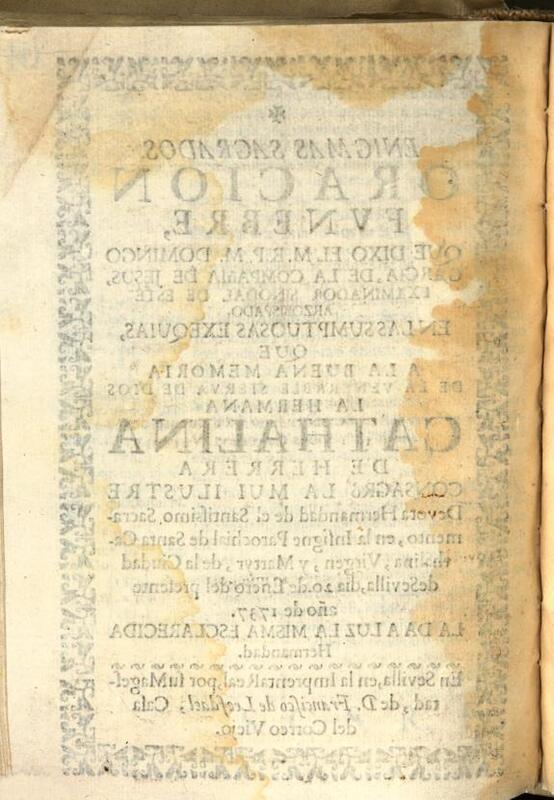 ENIGMAS SAGRADOS.
ORACION
FVNEBRE,
QUE DIXO EL M.R.P.M. DOMINGO
GARCIA, DE LA COMPAÑIA DE JESUS,
EXAMINADOR SINODAL DE ESTE
ARZOBISPADO,
EN LAS SUMPTUOSAS EXEQUIAS,
QUE
A LA BUENA MEMORIA
DE LA VENERABLE SIERVA DE DIOS
LA HERMANA
CATHALINA
DE HERRERA
CONSAGRÒ LA MUI ILUSTRE
Devota Hermandad de el Santissimo Sacra-
mento, en la Insigne Parochial de Santa Ca-
thalina, Virgen, y Martyr, de la Ciudad
de Sevilla, dia 20. de Enero del presente
año de 1737.
LA DA A LUZ LA MISMA ESCLARECIDA
Hermandad.
En Sevilla, en la Imprenta Real, por su Mages-
tad, de D. Francisco de Leefdael; Casa
del Correo Viejo.